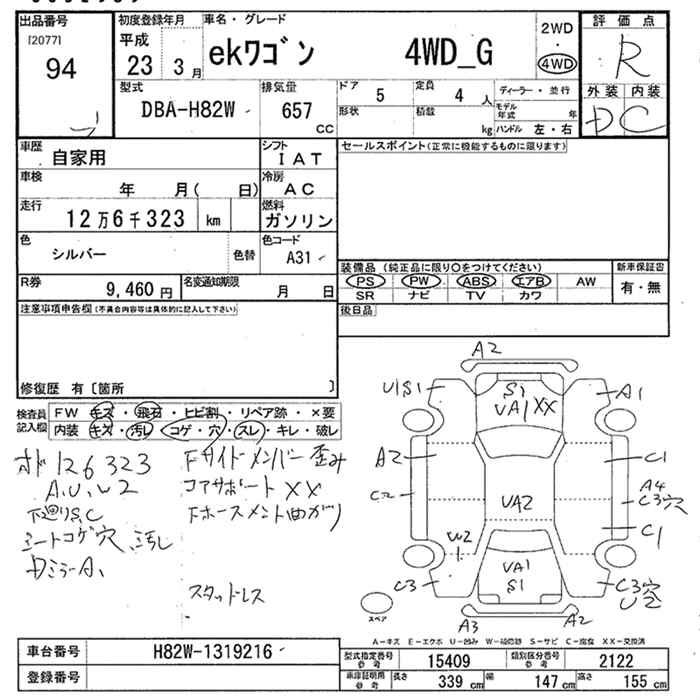 出品番号
[2077]
94
初度登録年月
平成
23 3月
車名・グレード
ekワゴン 4WD_G
2WD
4WD
評価点
R
外装 内装
D C
型式
DBA-H82W
排気量
657
cc
ドア 5
定員 4 人
形状
積載 kg
ディーラー・並行
モデル年式 年
ハンドル 左・右
車歴
自家用
シフト
I A T
セールスポイント(正常に機能するものに限ります)
車検
年 月( 日)
冷房
A C
走行
12万6千323 km
燃料
ガソリン
色
シルバー
色替
色コード
A31
R券
9,460円
名変通知期限
月 日
装備品(純正品に限り○をつけてください)
PS PW ABS エアB AW
SR ナビ TV カワ
新車保証書
有・無
後日品
注意事項申告欄(不具合内容等は具体的に記入して下さい)
修復歴 有〔箇所 〕
検査員記入欄
FW キズ・飛石・ヒビ割・リペア跡・×要
内装 キズ・汚レ・コゲ・穴・スレ・キレ・破レ
オド 126323
A.U.W2
下廻りS,C
シートコゲ穴、汚レ
DミラーA1
Fサイドメンバー歪み
コアサポートXX
Fホースメント曲がり
スタッドレス
A2
U1S1
S1
VA1 XX
A1
A2
C1
C2
VA2
A4
C3穴
C1
W2
1
VA1
S1
C3
C3穴
U2
A3
A2
スペア
A-キズ E-エクボ U-凹み W-補修跡 S-サビ C-腐食 XX-交換済
車台番号
H82W-1319216
登録番号
型式指定番号
参考
15409
類別区分番号
参考
2122
車庫証明用
参考
長さ 339 cm
幅 147 cm
高さ 155 cm